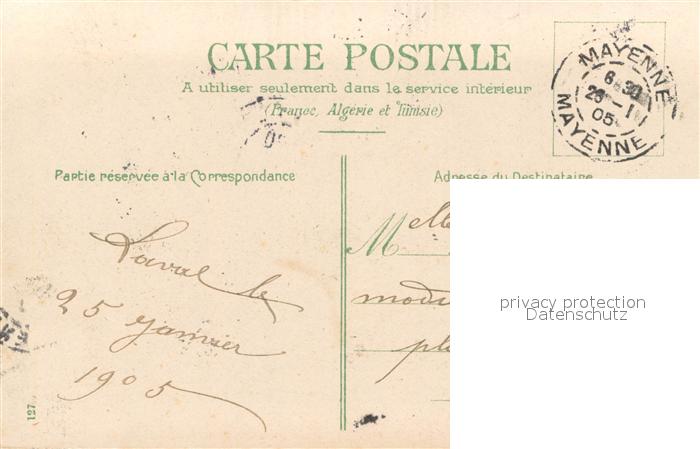 CARTE POSTALE
A utiliser seulement dans le service intérieur
(France, Algérie et Tunisie)
MAYENNE
6 30
26 - 1
05
MAYENNE
Partie réservée à la Correspondance
Adresse du Destinataire
Laval le
25 Janvier
1905
Melle
mod
pl
privacy protection
Datenschutz
127